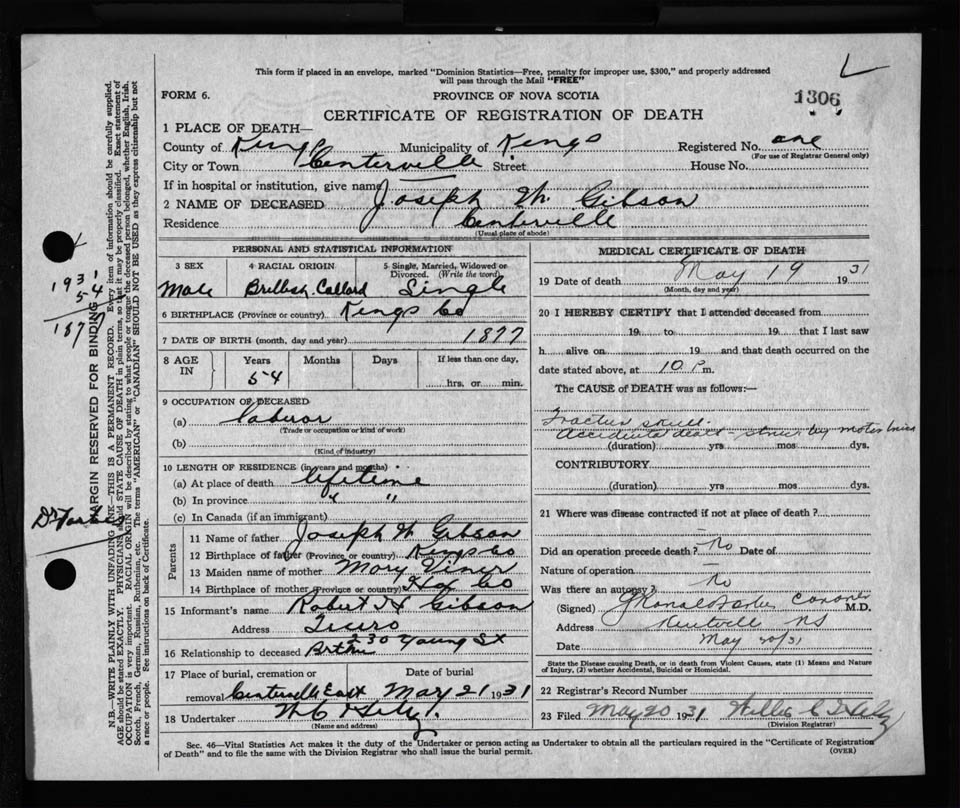 This form if placed in an envelope, marked "Dominion Statistics—Free, penalty for improper use, $300," and properly addressed
will pass through the Mail "FREE"
FORM 6.
PROVINCE OF NOVA SCOTIA
1306
CERTIFICATE OF REGISTRATION OF DEATH
1 PLACE OF DEATH—
County of Kings Municipality of Kings Registered No. one
(For use of Registrar General only)
City or Town Centerville Street House No.
If in hospital or institution, give name
2 NAME OF DECEASED Joseph W Gibson
Residence Centerville
(Usual place of abode)
PERSONAL AND STATISTICAL INFORMATION
3 SEX 4 RACIAL ORIGIN 5 Single, Married, Widowed or Divorced. (Write the word)
Male Single
6 BIRTHPLACE (Province or country) Kings Co
7 DATE OF BIRTH (month, day and year) 1877
8 AGE IN Years Months Days If less than one day,
54 hrs. or min.
9 OCCUPATION OF DECEASED
(a) Laberor
(Trade or occupation or kind of work)
(b)
(Kind of industry)
10 LENGTH OF RESIDENCE (in years and months)
(a) At place of death lifetime
(b) In province " "
(c) In Canada (if an immigrant)
Parents
11 Name of father Joseph W Gibson
12 Birthplace of father (Province or country) Kings Co
13 Maiden name of mother Mary
14 Birthplace of mother (Province or country) Hx Co
15 Informant's name Robert H Gibson
Address Truro
230 Young St
16 Relationship to deceased
17 Place of burial, cremation or removal Date of burial
Centerville East May 21 1931
18 Undertaker
(Name and address)
MEDICAL CERTIFICATE OF DEATH
19 Date of death May 19 1931
(Month, day and year)
20 I HEREBY CERTIFY that I attended deceased from
19 to 19 that I last saw
h alive on 19 and that death occurred on the
date stated above, at 10 P m.
The CAUSE of DEATH was as follows:—
Fracture skull
Accidental death - struck by motor
(duration) yrs. mos. dys.
CONTRIBUTORY
(duration) yrs. mos. dys.
21 Where was disease contracted if not at place of death?
Did an operation precede death? No Date of
Nature of operation
Was there an autopsy? No
(Signed) Coroner M.D.
Address Kentville NS
Date May 20/31
State the Disease causing Death, or in death from Violent Causes, state (1) Means and Nature
of Injury, (2) whether Accidental, Suicidal or Homicidal.
22 Registrar's Record Number
23 Filed May 20 1931
(Division Registrar)
Sec. 46—Vital Statistics Act makes it the duty of the Undertaker or person acting as Undertaker to obtain all the particulars required in the "Certificate of Registration
of Death" and to file the same with the Division Registrar who shall issue the burial permit.
(OVER)
1931
54
1877
Dr Forbes
MARGIN RESERVED FOR BINDING
N.B.—WRITE PLAINLY WITH UNFADING INK—THIS IS A PERMANENT RECORD. Every item of information should be carefully supplied.
AGE should be stated EXACTLY. PHYSICIANS should STATE CAUSE OF DEATH in plain terms, so that it may be properly classified. Exact statement of
OCCUPATION is very important. RACIAL ORIGIN will be described by stating to what people or tongue the deceased person belonged, whether English, Irish,
Scotch, French, German, Russian, Ruthenian, etc. The terms "AMERICAN" or "CANADIAN" SHOULD NOT BE USED as they express citizenship but not
a race or people. See instructions on back of Certificate.